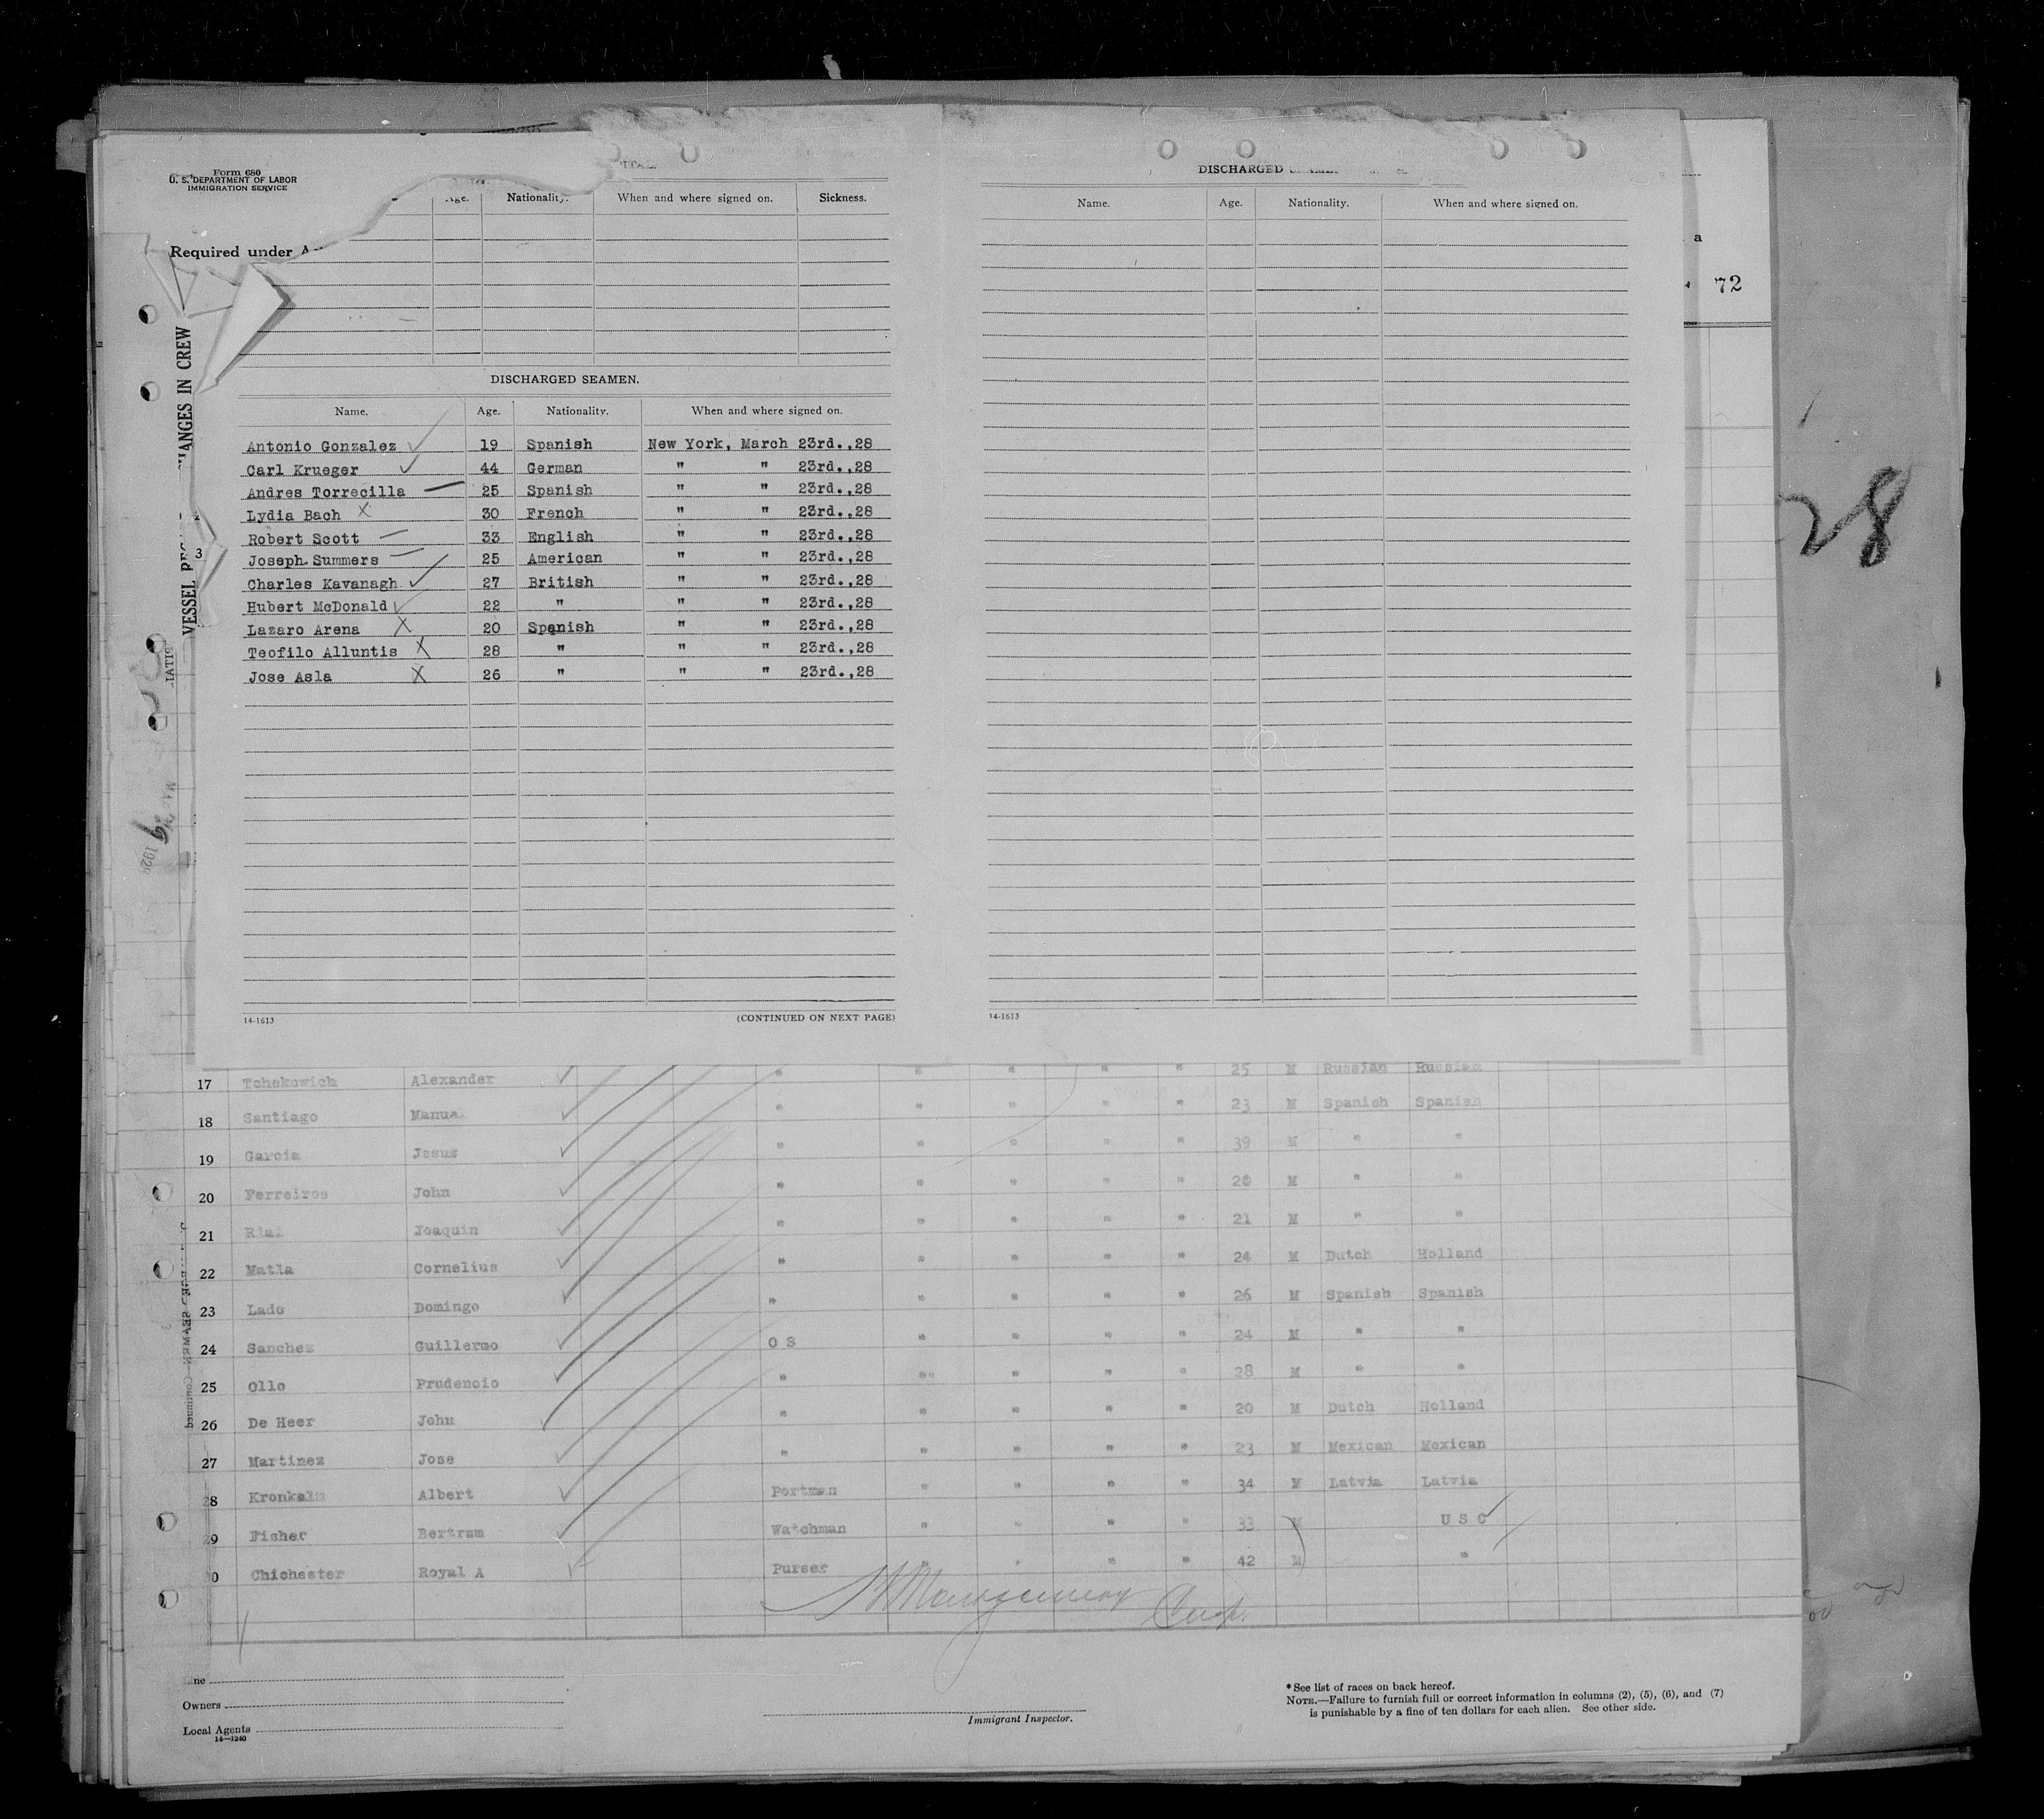 Form 680
U. S. DEPARTMENT OF LABOR
IMMIGRATION SERVICE
Required under
Age. Nationality. When and where signed on. Sickness.
DISCHARGED SEAMEN.
Name. Age. Nationality. When and where signed on.
Antonio Gonzalez 19 Spanish New York, March 23rd.,28
Carl Krueger 44 German " " 23rd.,28
Andres Torrecilla 25 Spanish " " 23rd.,28
Lydia Bach X 30 French " " 23rd.,28
Robert Scott 33 English " " 23rd.,28
Joseph Summers 25 American " " 23rd.,28
Charles Kavanagh 27 British " " 23rd.,28
Hubert McDonald 22 " " " 23rd.,28
Lazaro Arena X 20 Spanish " " 23rd.,28
Teofilo Alluntis X 28 " " " 23rd.,28
Jose Asla X 26 " " " 23rd.,28
14-1613 (CONTINUED ON NEXT PAGE)
DISCHARGED
Name. Age. Nationality. When and where signed on.
14-1613
a
72
28
VESSEL
CHANGES IN CREW
3
17 Tchekowich Alexander " " " " " 25 M Russian Russian
18 Santiago " " " " " 23 M Spanish Spanish
19 Garcia Jesus " " " " " 39 M " "
20 Ferreiros John " " " " " 20 M " "
21 Rial Joaquin " " " " " 21 M " "
22 Matla Cornelius " " " " " 24 M Dutch Holland
23 Lado Domingo " " " " " 26 M Spanish Spanish
24 Sanchez Guillermo O S " " " " 24 M " "
25 Ollo Prudencio " " " " " 28 M " "
26 De Heer John " " " " " 20 M Dutch Holland
27 Martinez Jose " " " " " 23 M Mexican Mexican
28 Albert Portman " " " " 34 M Latvia Latvia
29 Fisher Bertram Watchman " " " " 33 M U S C
0 Chichester Royal A Purser " " " " 42 M "
Montgomery
Line
Owners
Local Agents
14-1240
Immigrant Inspector.
* See list of races on back hereof.
NOTE.—Failure to furnish full or correct information in columns (2), (5), (6), and (7)
is punishable by a fine of ten dollars for each alien. See other side.